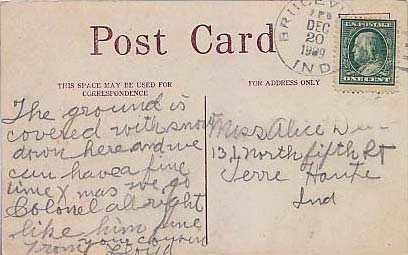 Post Card
BRUCEVI
DEC
20
IND
U.S. POSTAGE
ONE CENT
THIS SPACE MAY BE USED FOR
CORRESPONDENCE
FOR ADDRESS ONLY
The ground is
covered with snow
down here and we
can have a fine
time Xmas we go
Colonel all right
like him fine
From your cousin
Lloyd
Miss Alice
North fifth
Terre Haute
Ind